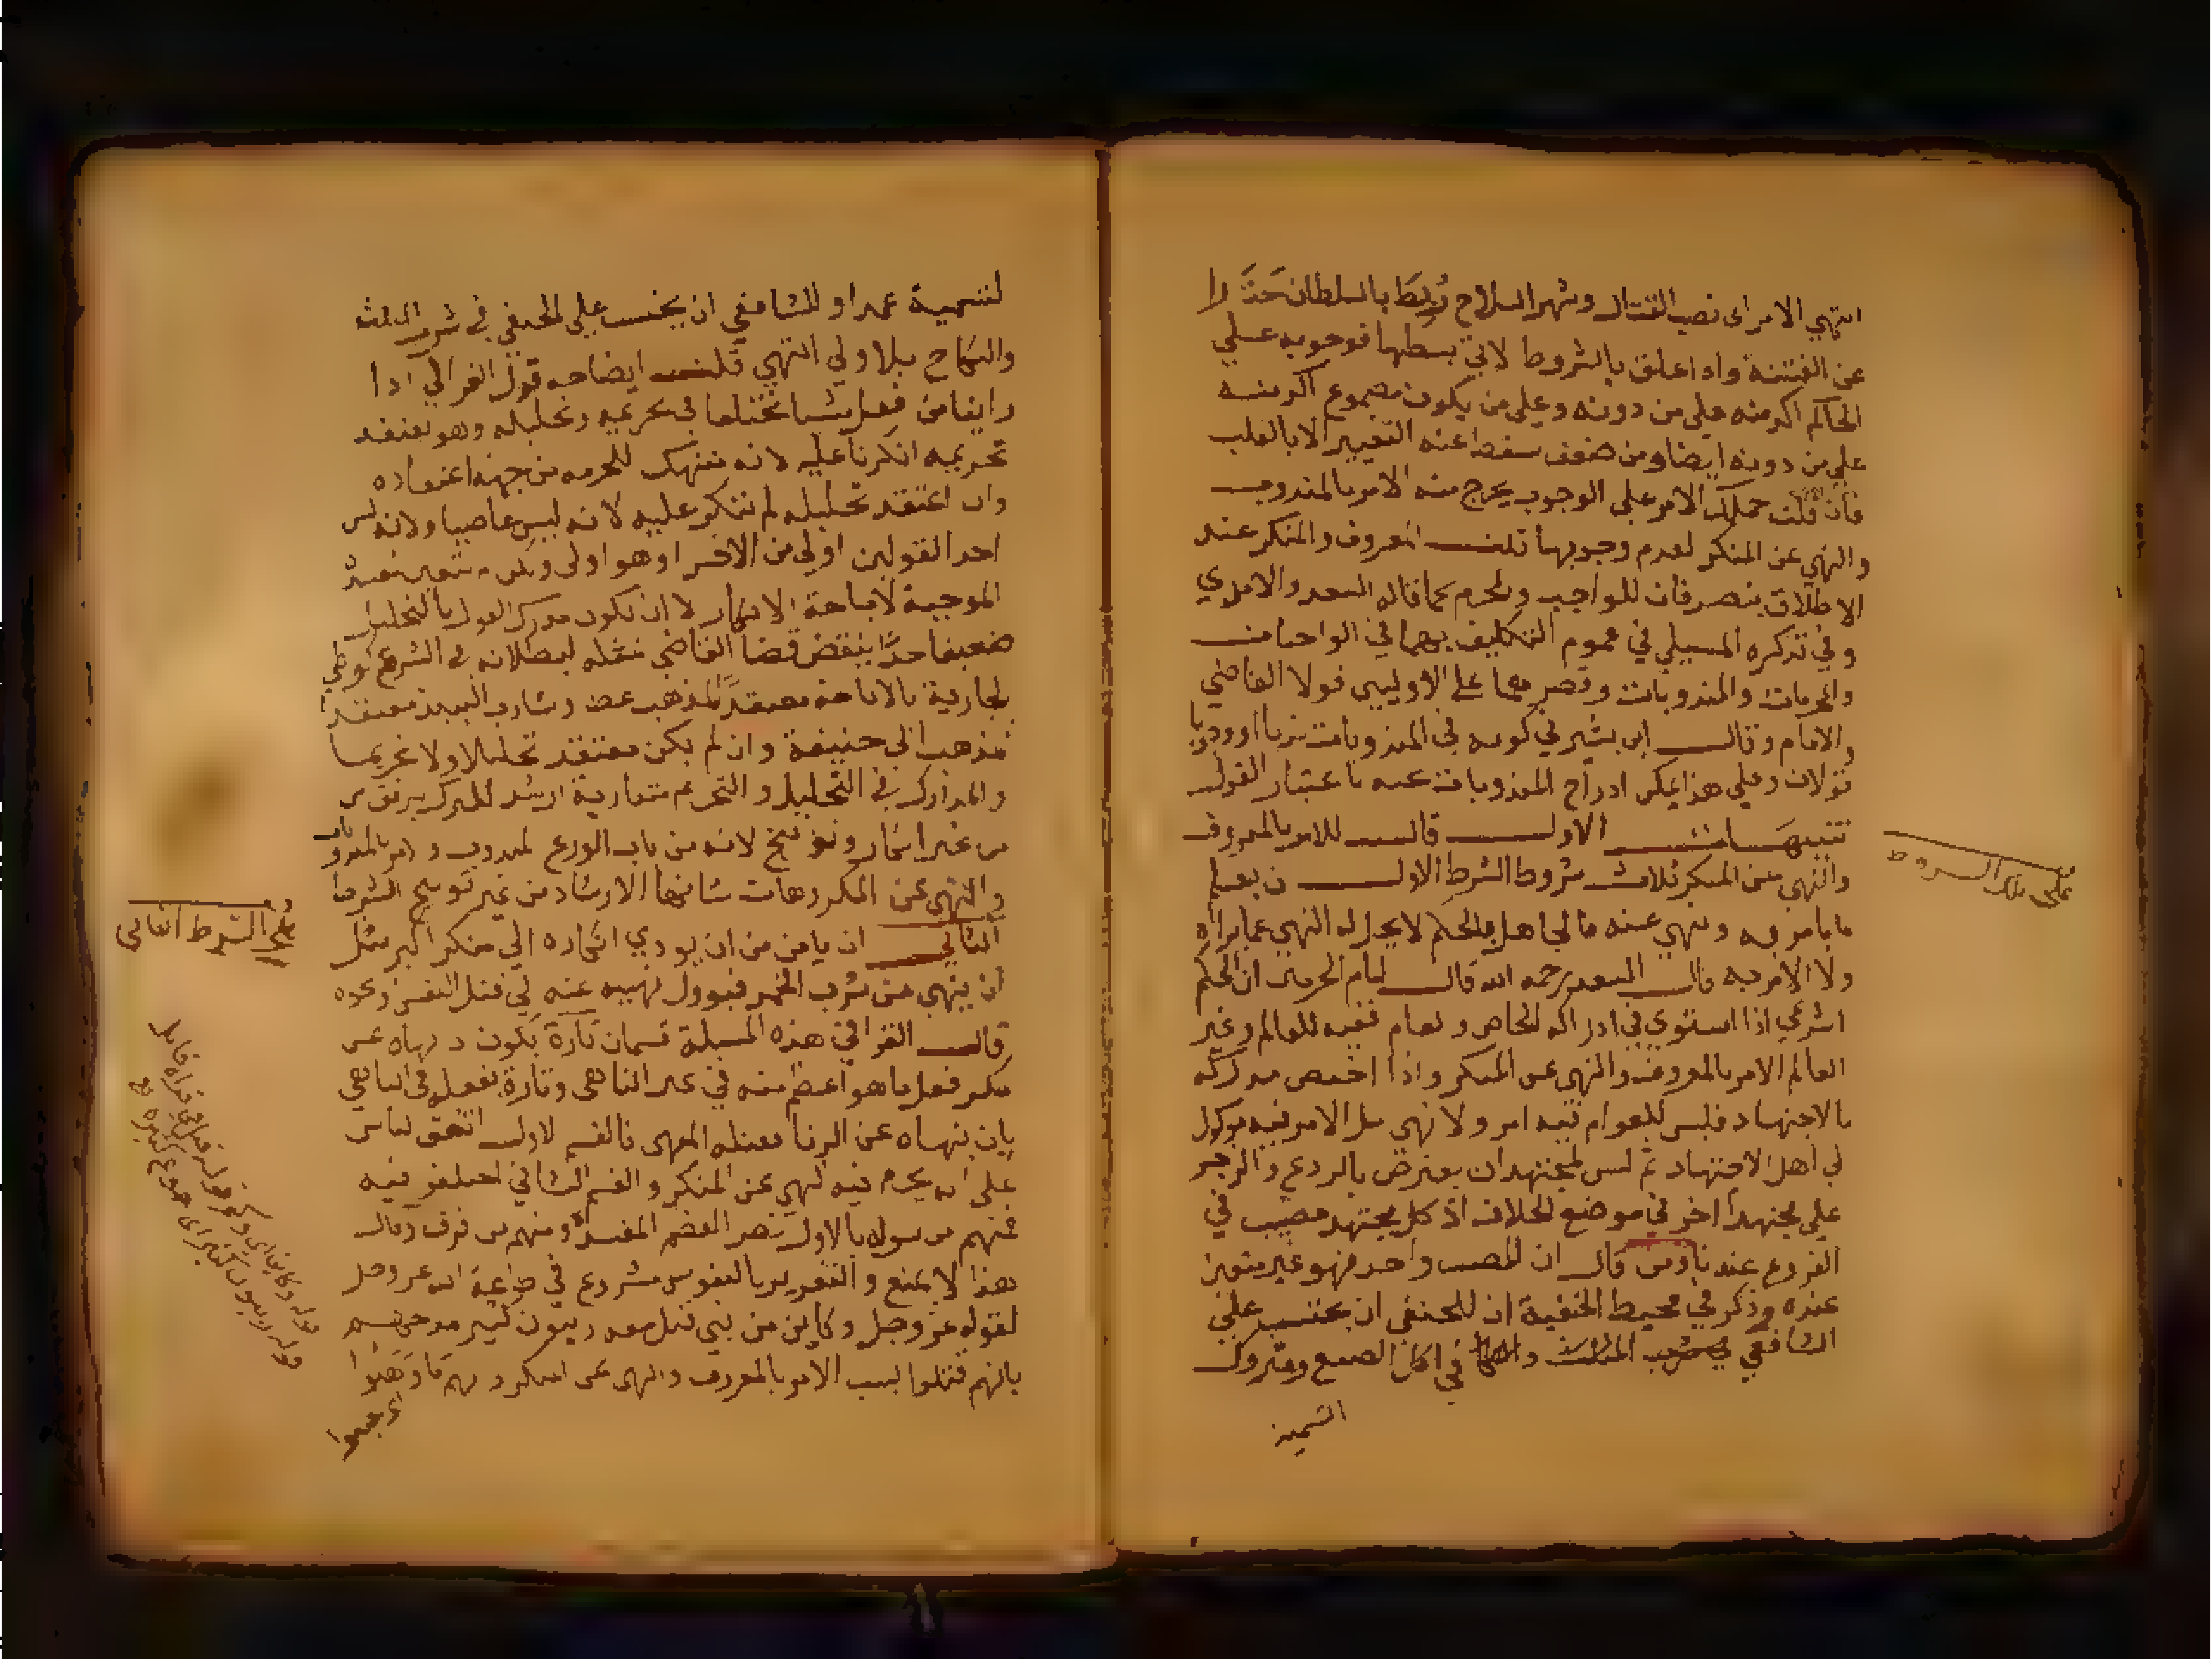 انتهي الامر الى نصب القتال وشهر السلاح رُبِطَ بالسلطان حَذَرا
عن الفتنة واه اعلق بالشروط لاتي بسطها فوجوبه علي
الحاكم اكد منه علي من دونه وعلي من يكون مسموع اكد منه
علي من دونه ايضا ومن ضعف سقط عنه التغيير الا بالقلب
فان قلت حملك الامر علي الوجوب يخرج منه الامر بالمندوب
والنهي عن المنكر لعدم وجوبها قلت المعروف والمنكر عند
الاطلاق ينصرفان للواجب والمحرم كما قاله السعد والامدي
وفي تذكره المسيلي في عموم التكليف بهما في الواجبات
والمحرمات والمندوبات وقصرهما على الاوليين قولا القاضي
والامام وقال ابن بشير في كونه في المندوبات ندبا او وجوبا
قولان وعلي هذا يمكن ادراج المندوبات عنه باعتبار القول
تنبيهات الاول قال للامر بالمعروف
والنهي عن المنكر ثلاث شروط الشرط الاول ان يعلم
ما يامر به وينهي عنه فالجاهل بالحكم لا يحل له النهي عما يراه
ولا الامر به قال السعد رحمه الله قال امام الحرمين ان الحكم
الشرعي اذا استوي في ادراكه الخاص والعام ففيه للعالم وغير
العالم الامر بالمعروف والنهي عن المنكر واذا اختص مدركه
بالاجتهاد فليس للعوام فيه امر ولا نهي بل الامر فيه موكول
الي اهل الاجتهاد ثم ليس لمجتهد ان يعترض بالردع والزجر
علي مجتهد اخر في موضع الخلاف اذ كل مجتهد مصيب في
الفروع عندنا ومن قال ان المصيب واحد فهو غير متعين
عنده وذكر في محيط الحنفية ان للحنفي ان يحتسب علي
الشافعي في اكل الضبع ومتروك
التسمية
على ملا الشروط
لتسمية عمدا وللشافعي ان يحتسب علي الحنفي في شرب المثلث
والنكاح بلا ولي انتهي قلت ايضاحه قول القرافي اذا
راينا من فعل شيا مختلفا في تحريمه وتحليله وهو يعتقد
تحريمه انكرنا عليه لانه منتهك للحرمه من جهة اعتقاده
وان اعتقد تحليله لم ننكر عليه لانه ليس عاصيا ولانه ليس
احد القولين اولي من الاخر او هو اولى ولكن لم تتعين مفسدة
الموجبة لاباحة الانكار الا ان يكون مدرك القول بالتحليل
ضعيفا جدًا ينقض قضا القاضي بمثله لبطلانه في الشرع كوطي
الجارية بالاباحة معتقدًا لمذهب عطا وشارب النبيذ معتقدا
مذهب ابي حنيفة وان لم يكن معتقد تحليلا ولا تحريما
والمدارك في التحليل والتحريم متقاربة ارشد للترك برفق من
من غير انكار وتوبيخ لانه من باب الورع المندوب والامر بالمندوبات
والنهي عن المكروهات شانهما الارشاد من غير توبيخ الشرط
الثاني ان يامن من ان يودي انكاره الي منكر اكبر مثل
ان ينهي عن شرب الخمر فيوول نهييه عنه الي قتل النفس ونحوه
قال القرافي هذه المسيلة قسمان تارة يكون اذا نهاه عن
منكر فعل ما هو اعظم منه في غير الناهي وتارة يفعله في الناهي
بان ينهاه عن الزنا فيقتله المنهي فالقسم الاول اتفق الناس
على انه يحرم فيه النهي عن المنكر والقسم الثاني اختلفو فيه
فمنهم من سواه بالاول نظر العظم المفسدة ومنهم من فرق وقال
هذا لا يمنع والتغرير بالنفوس مشروع في طاعة الله عز وجل
لقوله عز وجل وكاين من نبي قتل معه ربيون كثير مدحهم
بانهم قتلوا بسبب الامر بالمعروف والنهي عن المنكر وانهم ما وهنوا
على الشرط الثاني